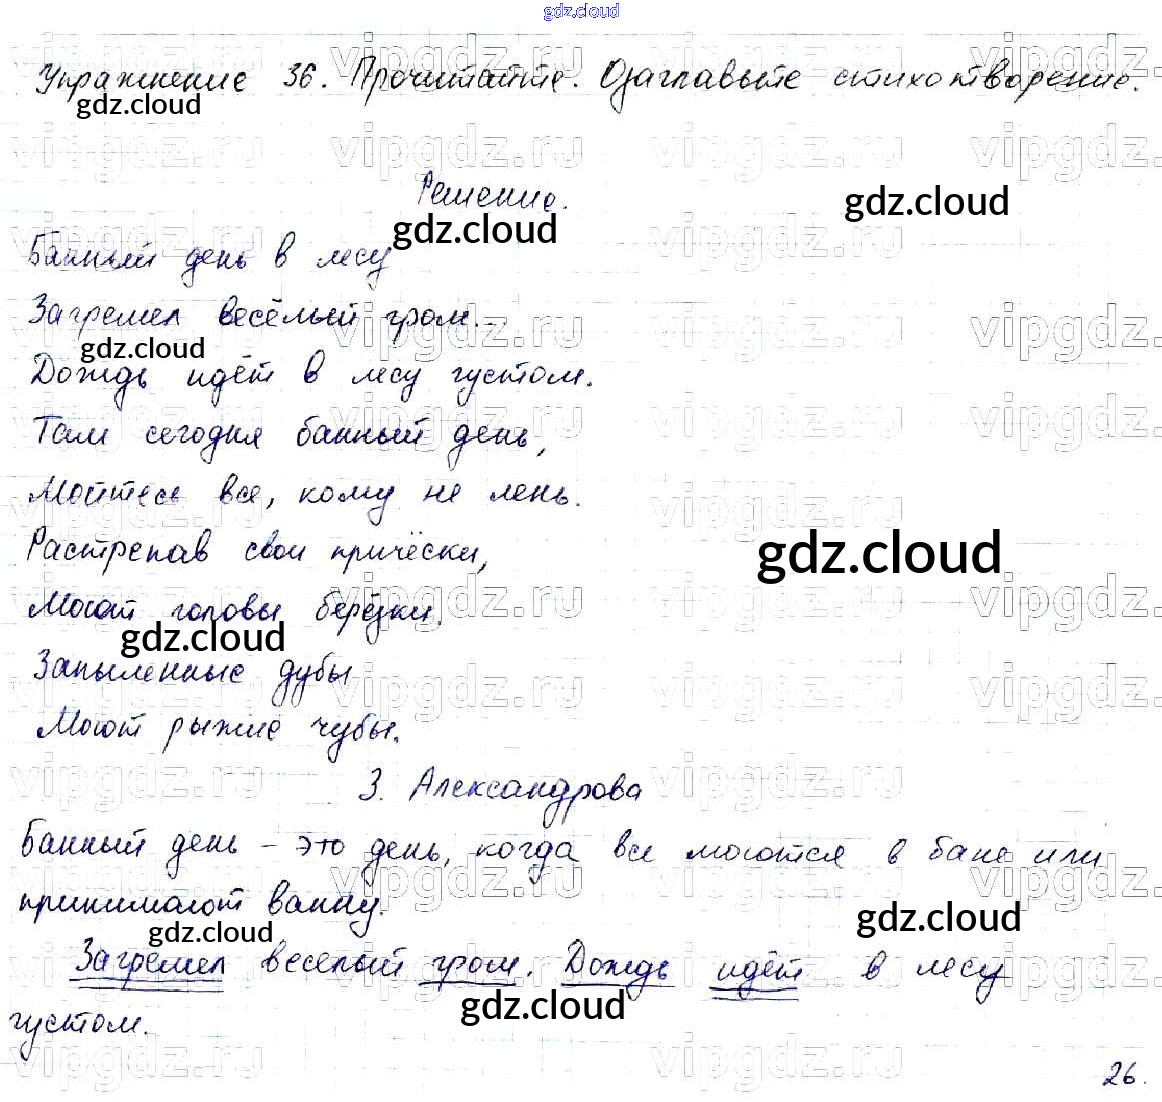 gdz.cloud
Упражнение 36. Прочитайте. Озаглавьте стихотворение.
gdz.cloud
Решение.
gdz.cloud
gdz.cloud
Банный день в лесу
Загремел весёлый гром...
gdz.cloud
Дождь идёт в лесу густом.
Там сегодня банный день,
Мойтесь все, кому не лень.
Растрепав свои причёски,
gdz.cloud
Моют головы берёзки.
gdz.cloud
Запыленные дубы
Моют рыжие чубы.
З. Александрова
Банный день – это день, когда все моются в бане или
принимают ванну.
gdz.cloud
gdz.cloud
Загремел веселый гром. Дождь идёт в лесу
gdz.cloud
густом.
26.
vipgdz.ru